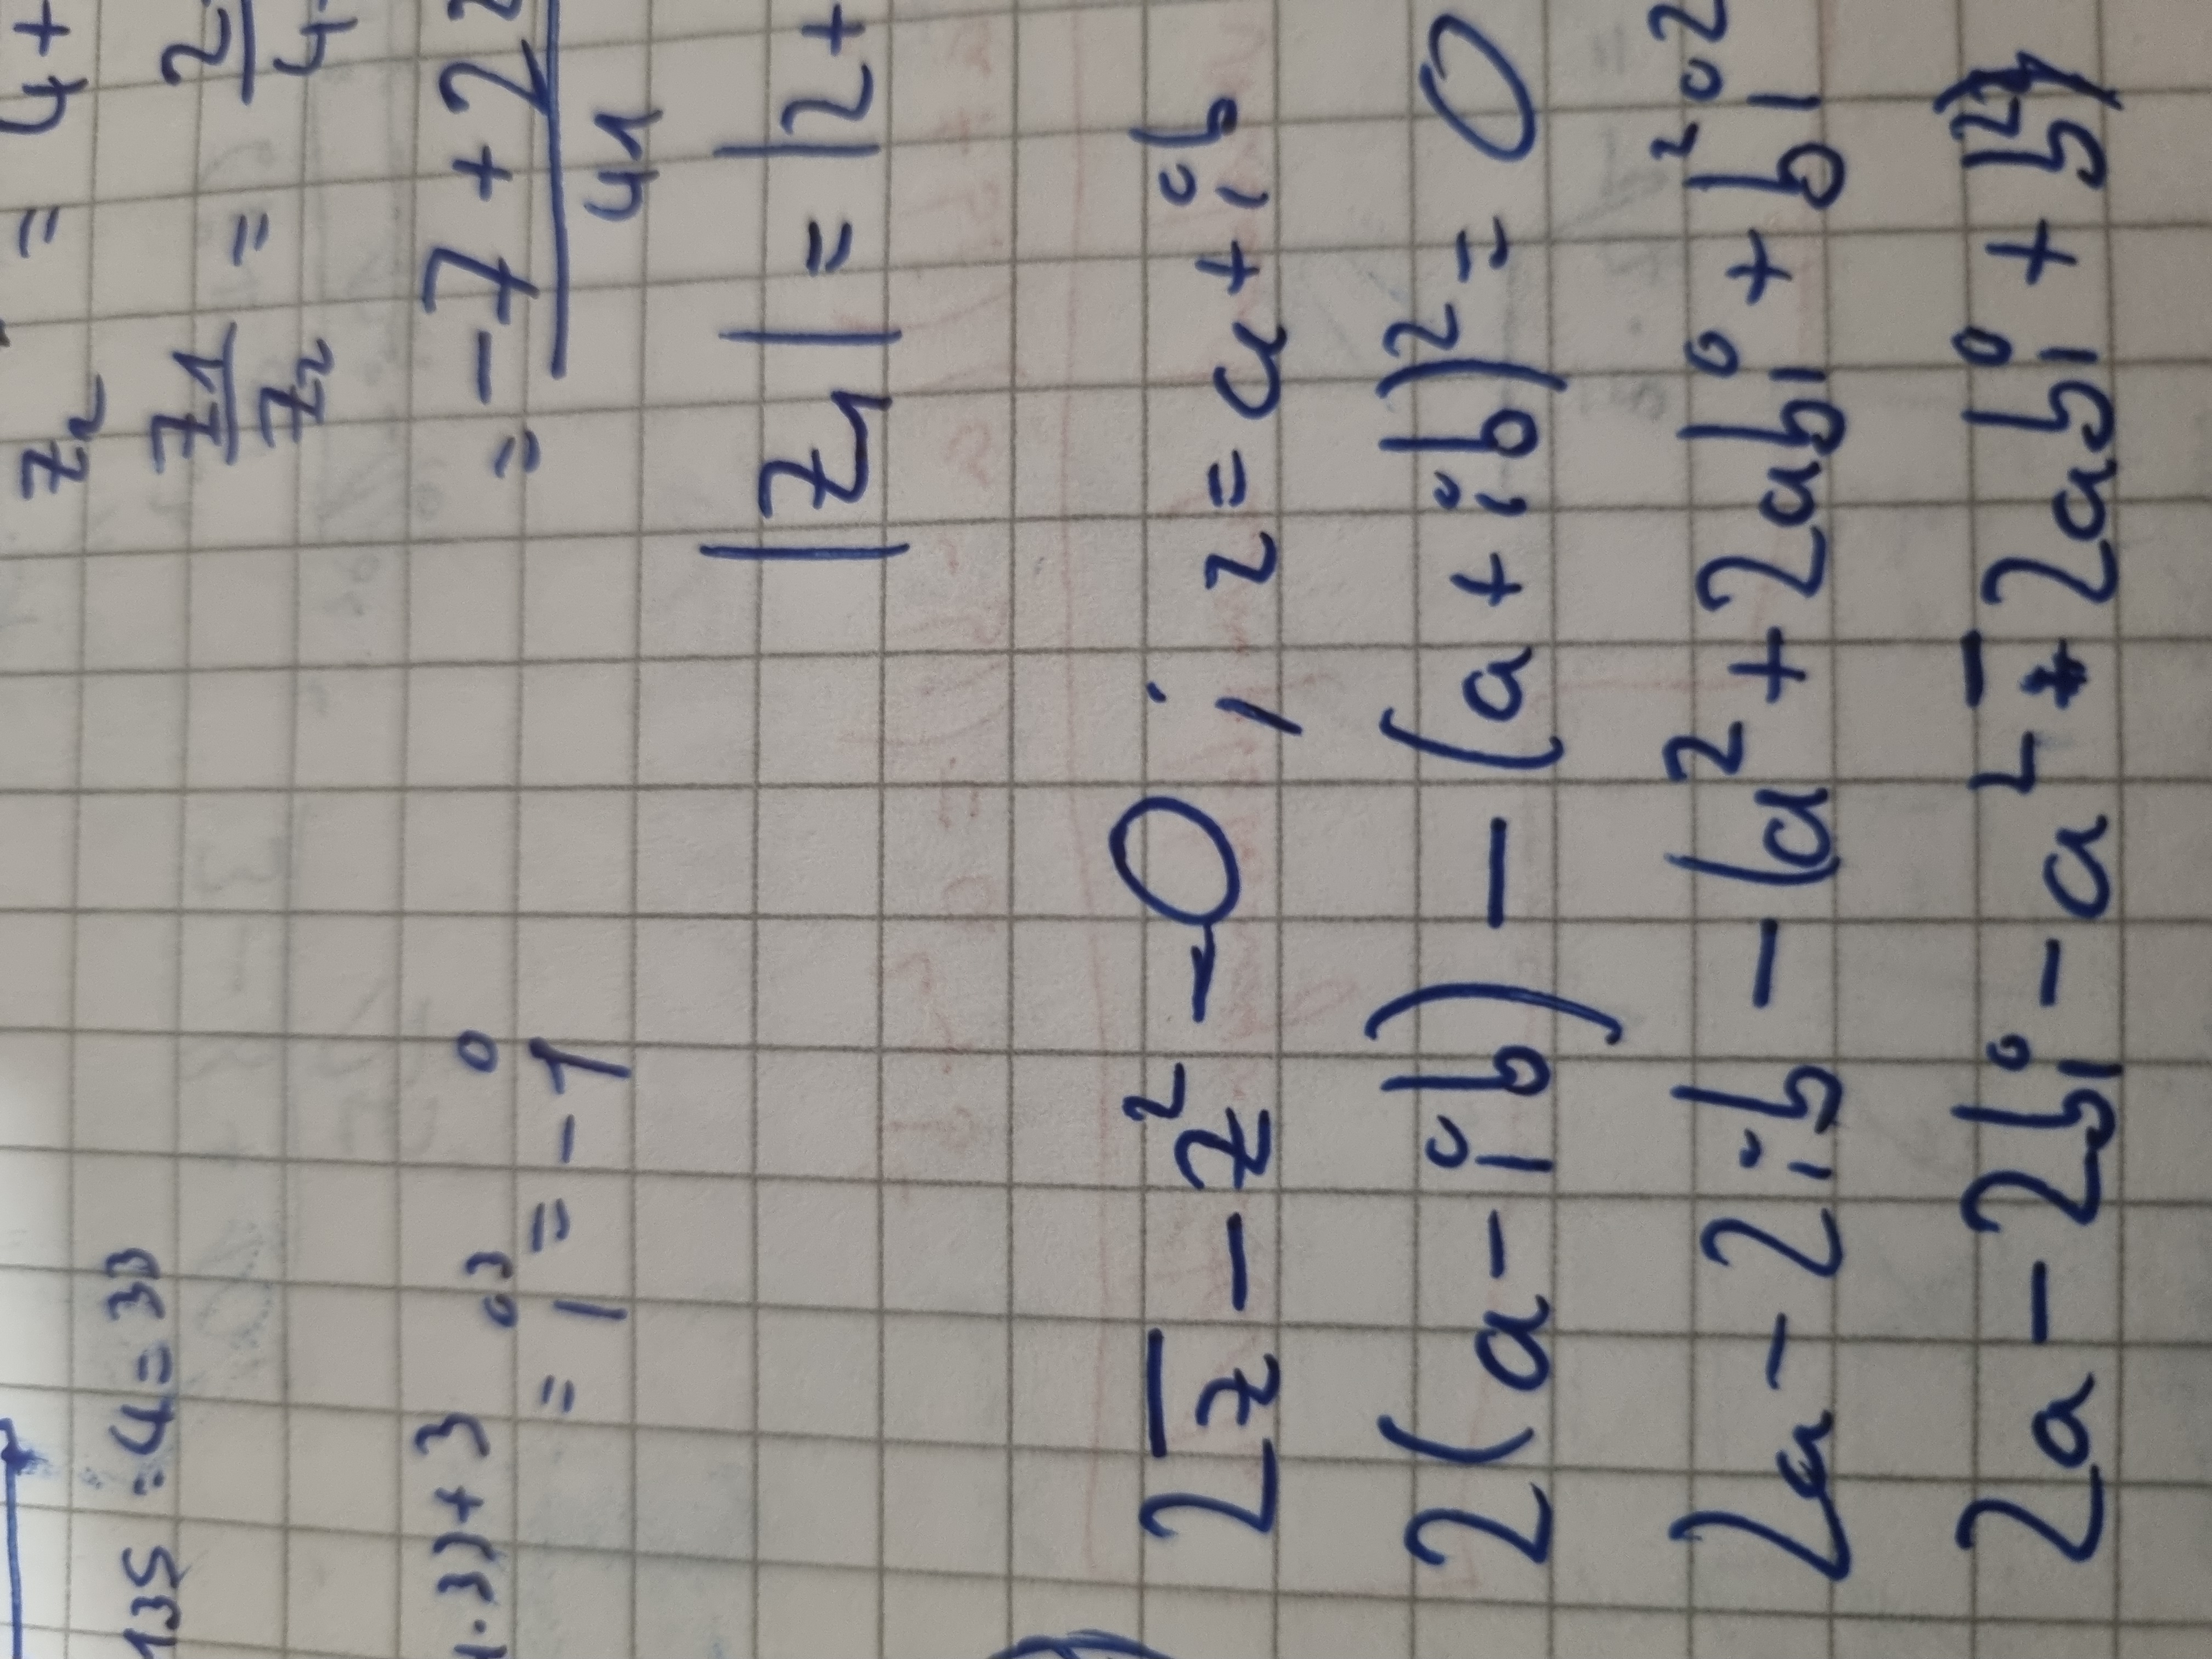 z₂ = 4+
135 : 4 = 33
z1/z₂ = 2/4
4·33+3 = i³ = -i
= -7 + 22 / 41
|z₁| = |2+
2z̅ - z² - 0 ; z = a + ib
2(a - ib) - (a + ib)² = 0
2a - 2ib - (a² + 2abi + b²i²
2a - 2bi - a² - 2abi + b²